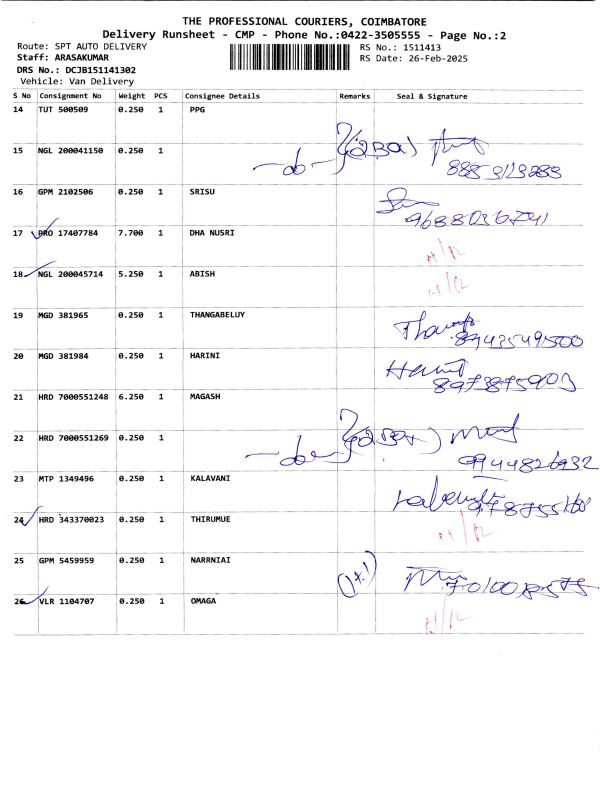 THE PROFESSIONAL COURIERS, COIMBATORE
Delivery Runsheet - CMP - Phone No.:0422-3505555 - Page No.:2
Route: SPT AUTO DELIVERY RS No.: 1511413
Staff: ARASAKUMAR RS Date: 26-Feb-2025
DRS No.: DCJB151141302
Vehicle: Van Delivery
S No Consignment No Weight PCS Consignee Details Remarks Seal & Signature
14 TUT 500509 0.250 1 PPG
15 NGL 200041150 0.250 1
-do-
16 GPM 2102506 0.250 1 SRISU
9688036741
17 PRO 17407784 7.700 1 DHA NUSRI
18 NGL 200045714 5.250 1 ABISH
19 MGD 381965 0.250 1 THANGABELUY
20 MGD 381984 0.250 1 HARINI
8973875903
21 HRD 7000551248 6.250 1 MAGASH
22 HRD 7000551269 0.250 1
9944826932
23 MTP 1349496 0.250 1 KALAVANI
24 HRD 343370023 0.250 1 THIRUMUE
25 GPM 5459959 0.250 1 NARRNIAI
26 VLR 1104707 0.250 1 OMAGA